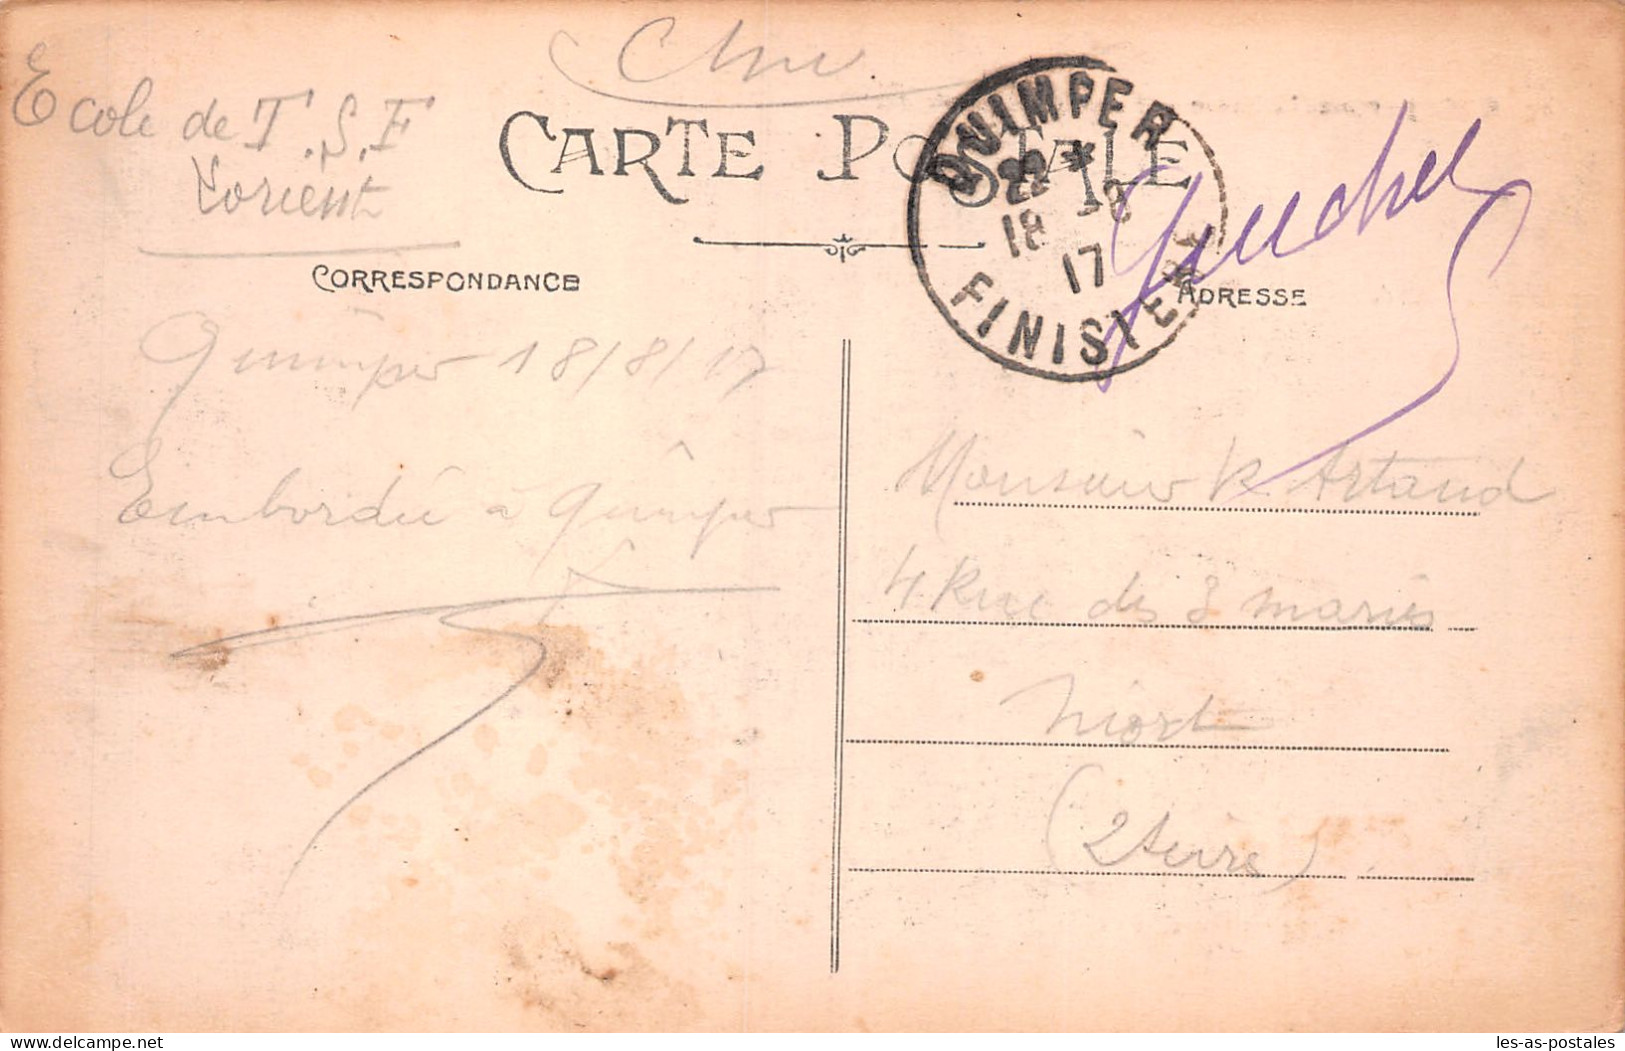 Ecole de T.S.F
Lorient
CARTE POSTALE
QUIMPER
18 -8
17
FINISTERE
CORRESPONDANCE
ADRESSE
Quimper 18/8/17
Embordée à Quimper
Monsieur R Artaud
4 Rue des 3 maries
Niort
(2 Sevres)
les-as-postales